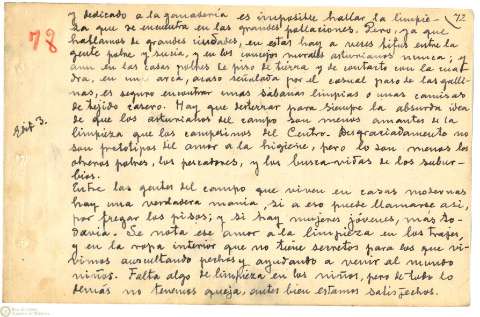 72
78
y dedicado a la ganadería es imposible hallar la limpie-
za que se encuentra en las grandes poblaciones. Pero, ya que
hablamos de grandes ciudades, en estas hay a veces tifus entre la
gente pobre y sucia, y en los concejos rurales asturianos nunca; y
aun en las casas pobres de piso de tierra y de contacto con la cua-
dra, en un arca, acaso señalada por el casual paso de las galli-
nas, es seguro encontrar unas sábanas limpias o unas camisas
de tejido casero. Hay que desterrar para siempre la absurda idea
de que los asturianos del campo son menos amantes de la
limpieza que los campesinos del Centro. Desgraciadamente no
son prototipos del amor a la higiene, pero lo son menos los
obreros pobres, los pescadores, y los busca-vidas de los subur-
bios.
Edif 3.
Entre las gentes del campo que viven en casas modernas
hay una verdadera manía, si a eso puede llamarse así,
por fregar los pisos; y si hay mujeres jóvenes, más to-
davía. Se nota ese amor a la limpieza en los trajes,
y en la ropa interior que no tiene secretos para los que vi-
vimos auscultando pechos y ayudando a venir al mundo
niños. Falta algo de limpieza en los niños, pero de todo lo
demás no tenemos queja, antes bien estamos satisfechos.